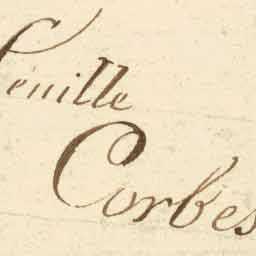 Cenille
Corbes